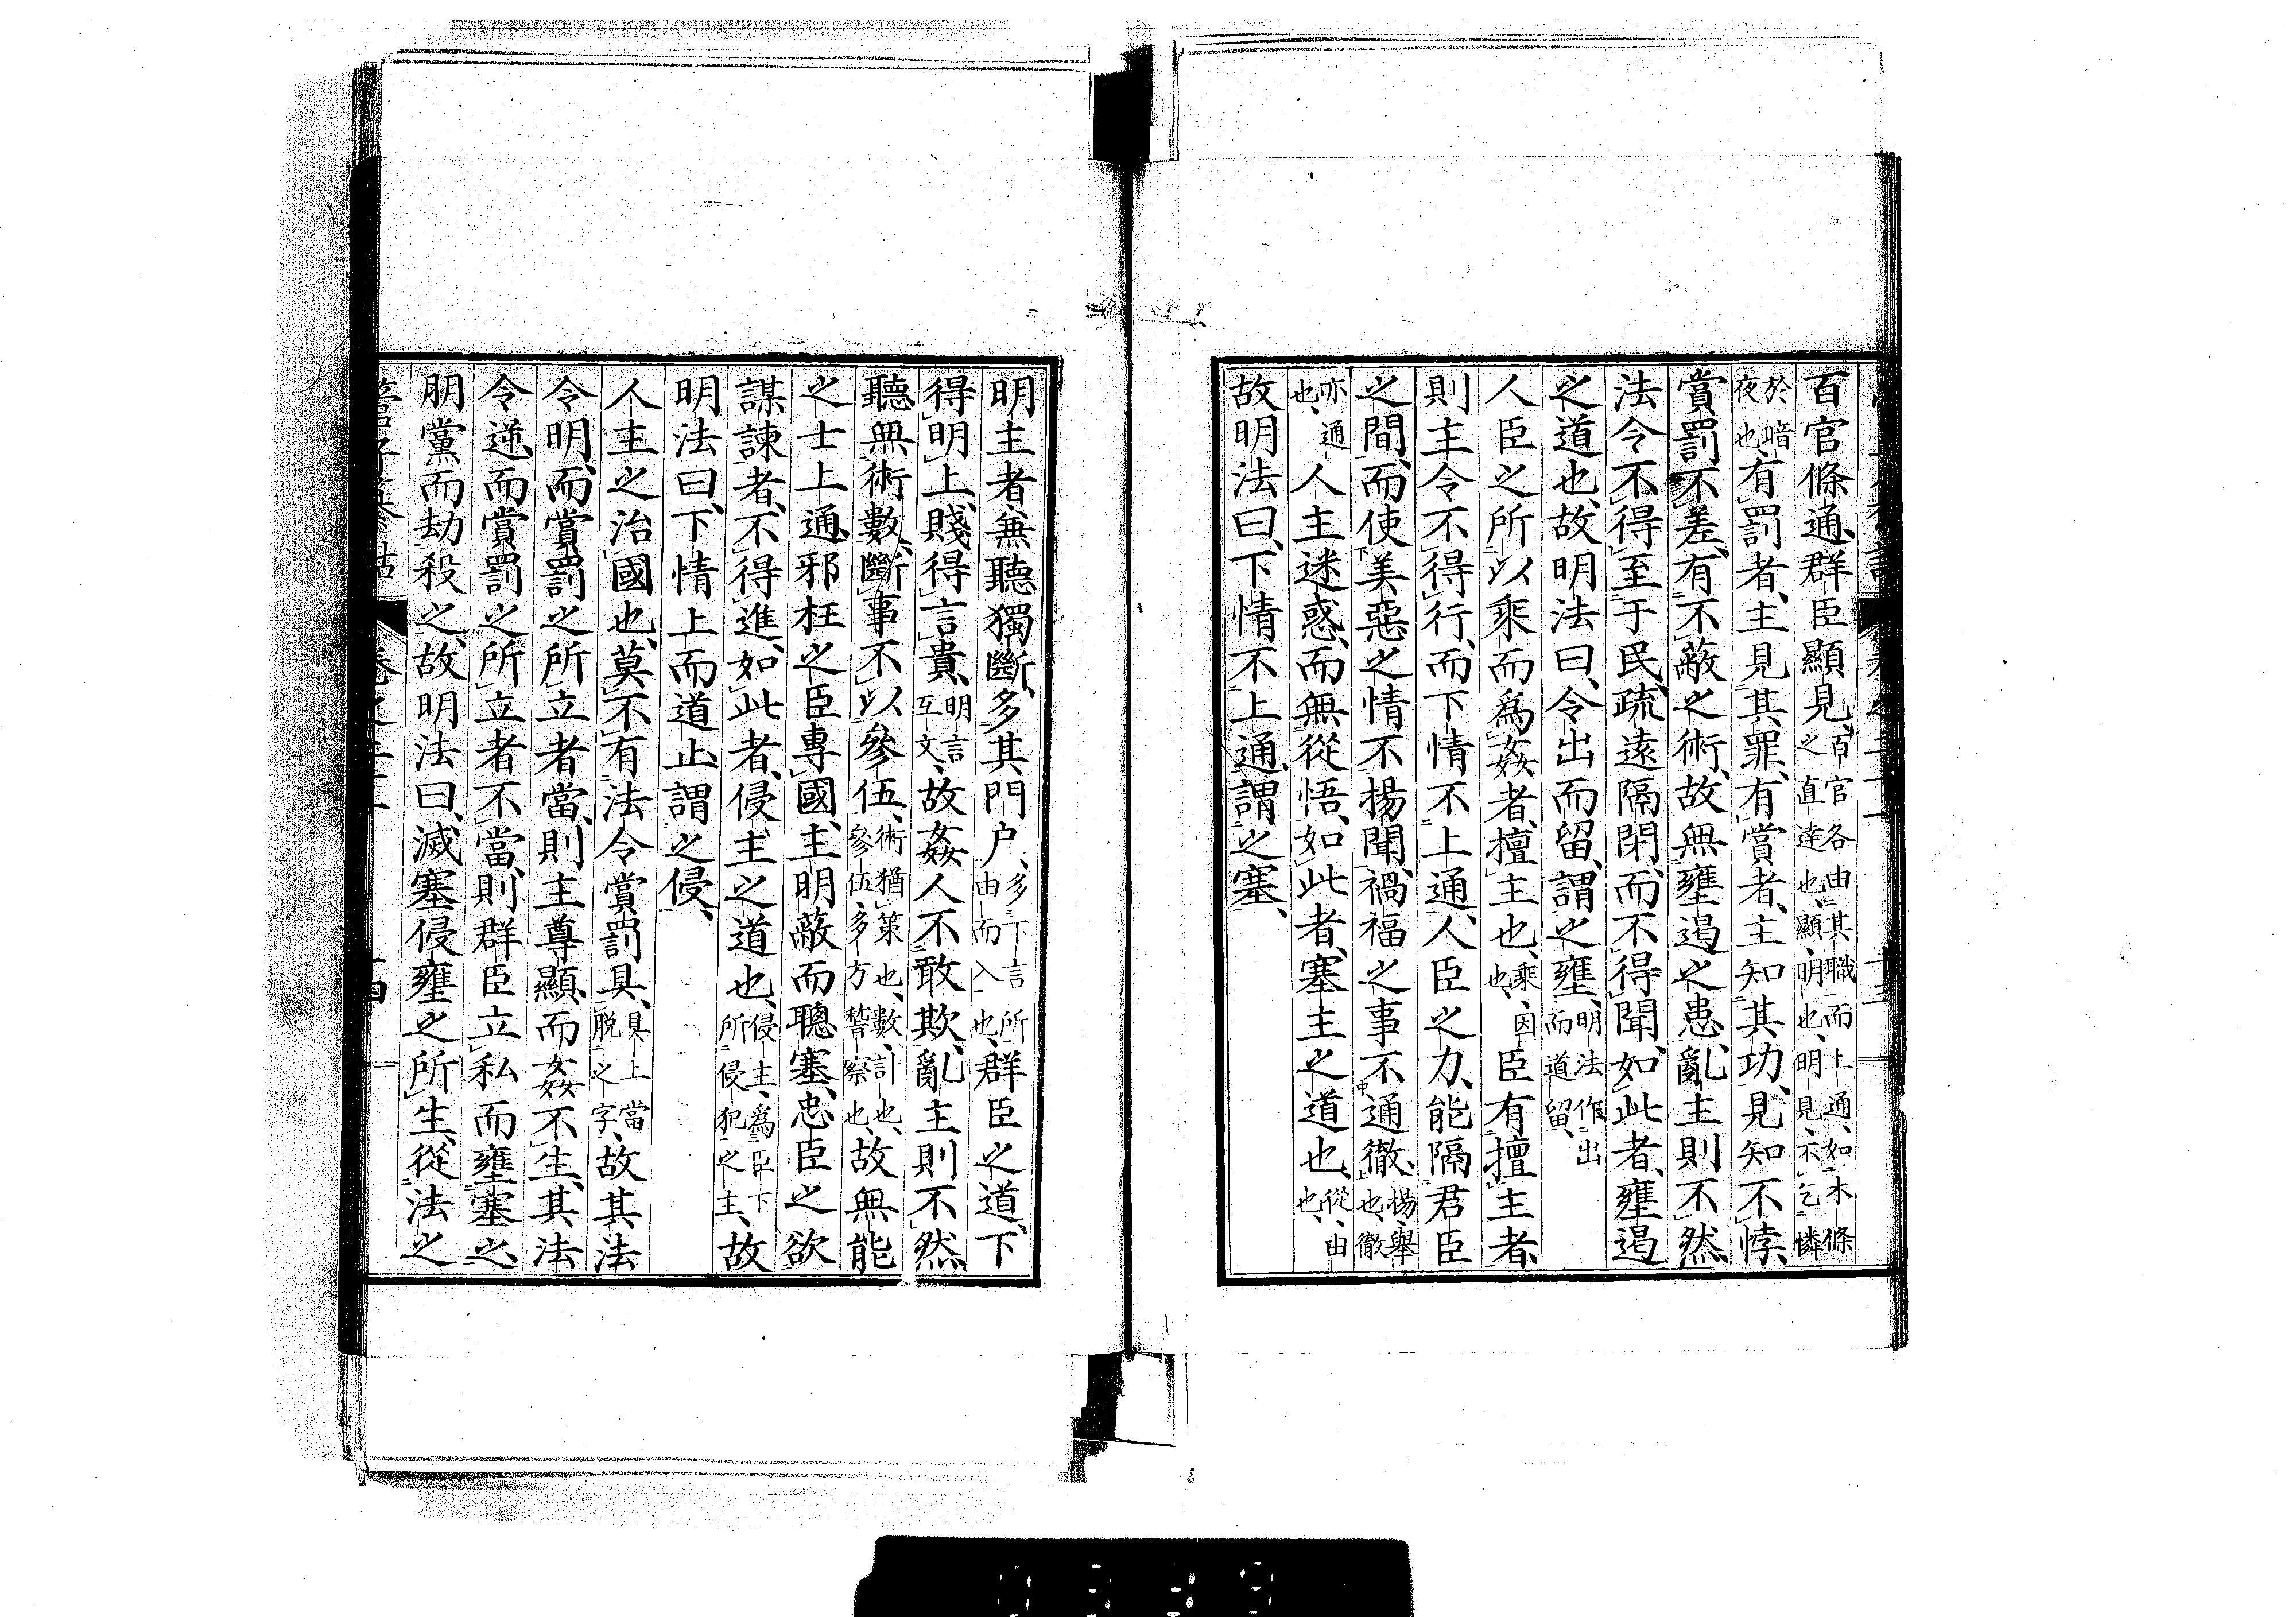 百官條通、群臣顯見、百官各由其職而上通、如木條之直達也、顯、明也、明見、不乞憐
於暗夜也、有罰者、主見其罪、有賞者、主知其功、見知不悖、
賞罰不差、有不蔽之術、故無壅遏之患、亂主則不然、
法令不得至于民、疏遠隔閉、而不得聞、如此者、壅遏
之道也、故明法曰、令出而留、謂之壅、明法作出而道留、
人臣之所以乘而爲姦者、擅主也、乘、因也、臣有擅主者、
則主令不得行、而下情不上通、人臣之力、能隔君臣
之間、而使美惡之情不揚聞、禍福之事不通徹、揚、舉也、徹
亦通也、人主迷惑、而無從悟、如此者、塞主之道也、從、由也、
故明法曰、下情不上通、謂之塞、
明主者、無聽獨斷、多其門户、多下言所由而入也、群臣之道、下
得明上、賤得言貴、明言互文、故姦人不敢欺、亂主則不然、
聽無術數、斷事不以參伍、術猶策也、數、計也、參伍、多方警察也、故無能
之士上通、邪枉之臣專國、主明蔽而聰塞、忠臣之欲
謀諫者、不得進、如此者、侵主之道也、侵主、爲臣下所侵犯之主、故
明法曰、下情上而道止謂之侵、
人主之治國也、莫不有法令賞罰具、具上當脫之字、故其法
令明、而賞罰之所立者當、則主尊顯、而姦不生、其法
令逆、而賞罰之所立者不當、則群臣立私而壅塞之、
朋黨而劫殺之、故明法曰、滅塞侵壅之所生、從法之